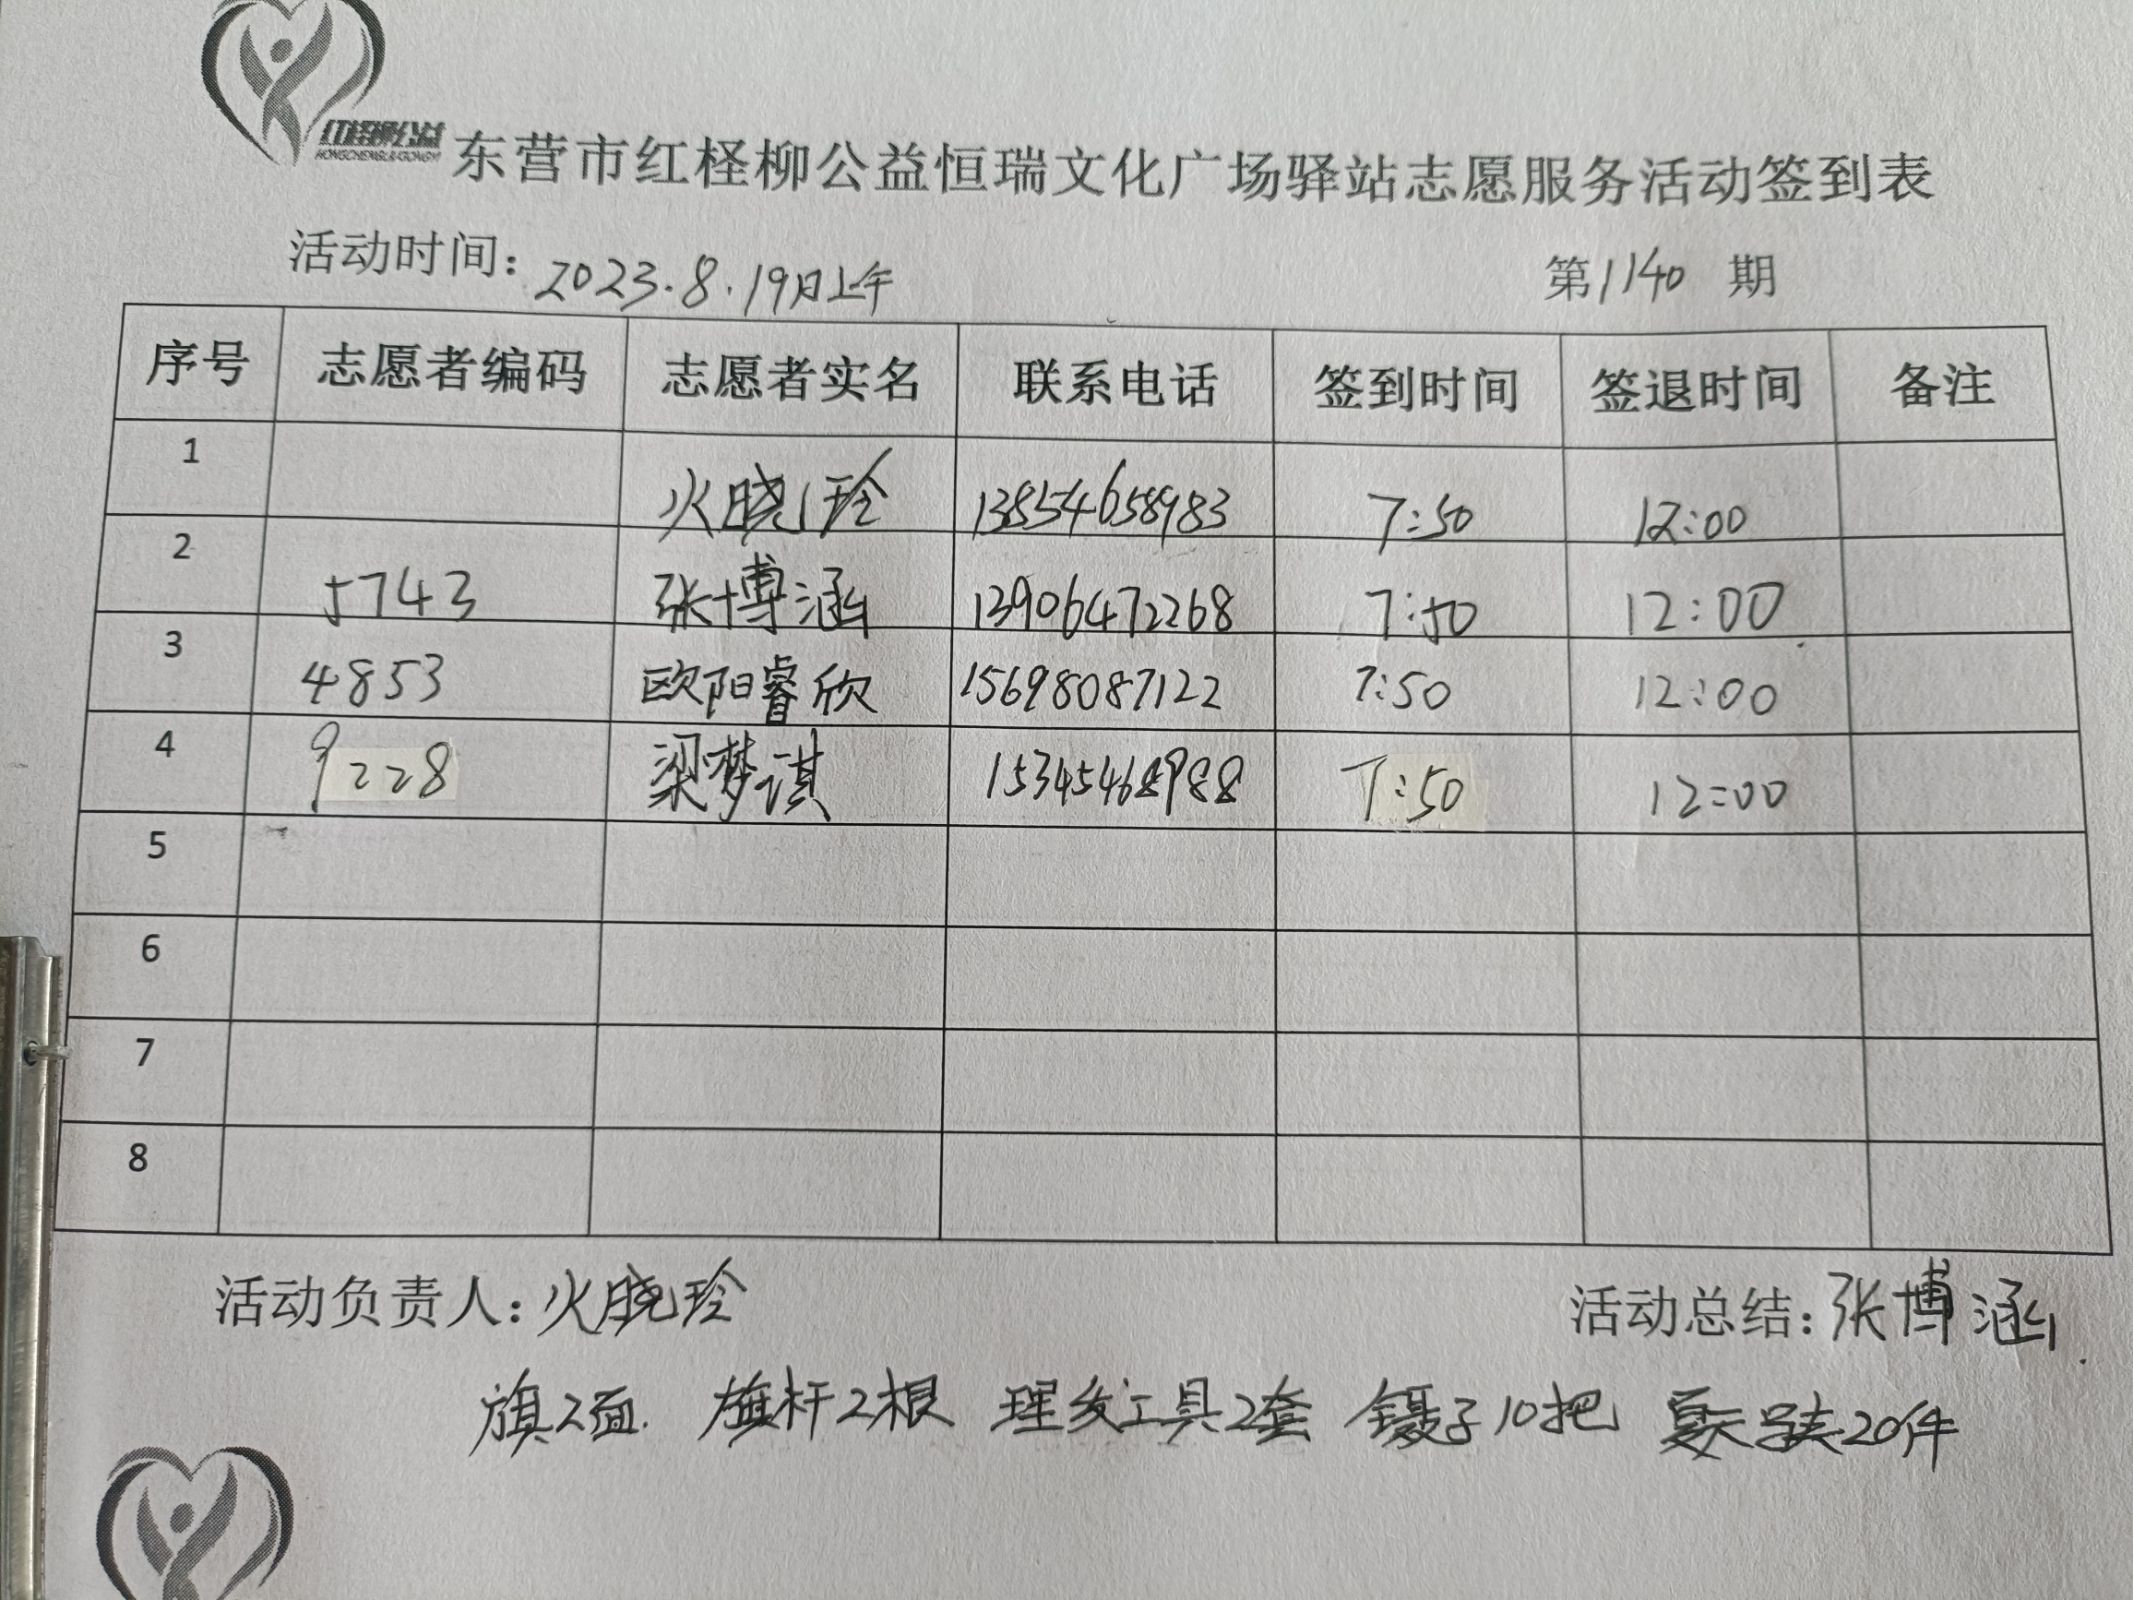 红柽柳公益
HONGCHENGLIUGONGYI
东营市红柽柳公益恒瑞文化广场驿站志愿服务活动签到表
活动时间：2023.8.19日上午 第1140期
序号 志愿者编码 志愿者实名 联系电话 签到时间 签退时间 备注
1 火晓玲 13854658983 7:50 12:00
2 5743 张博涵 13906472268 7:50 12:00
3 4853 欧阳睿欣 15698087122 7:50 12:00
4 9228 梁梦淇 15345468988 7:50 12:00
5
6
7
8
活动负责人：火晓玲 活动总结：张博涵
旗2面. 旗杆2根 理发工具2套 镊子10把 夏天 20件